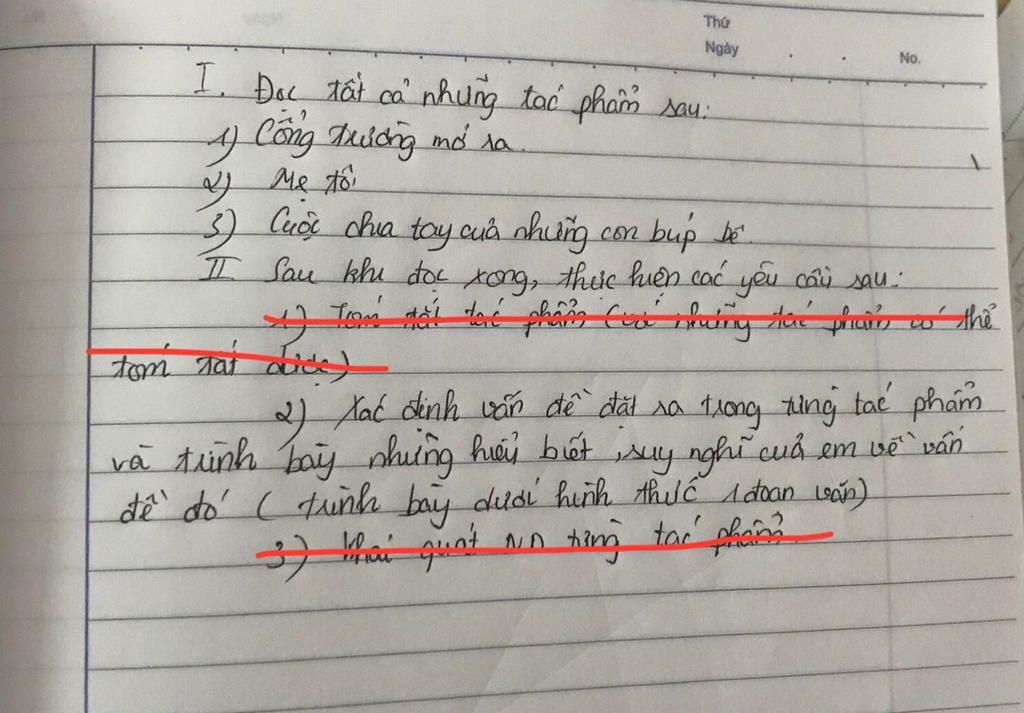 Thứ
Ngày . . No.
I. Đọc tất cả những tác phẩm sau:
1) Cổng trường mở ra.
2) Mẹ tôi
3) Cuộc chia tay của những con búp bê.
II Sau khi đọc xong, thực hiện các yêu cầu sau:
1) Tóm tắt tác phẩm (với những tác phẩm có thể
tóm tắt được)
2) Xác định vấn đề đặt ra trong từng tác phẩm
và trình bày những hiểu biết, suy nghĩ của em về vấn
đề đó ( trình bày dưới hình thức 1 đoạn văn)
3) Khái quát ND từng tác phẩm.